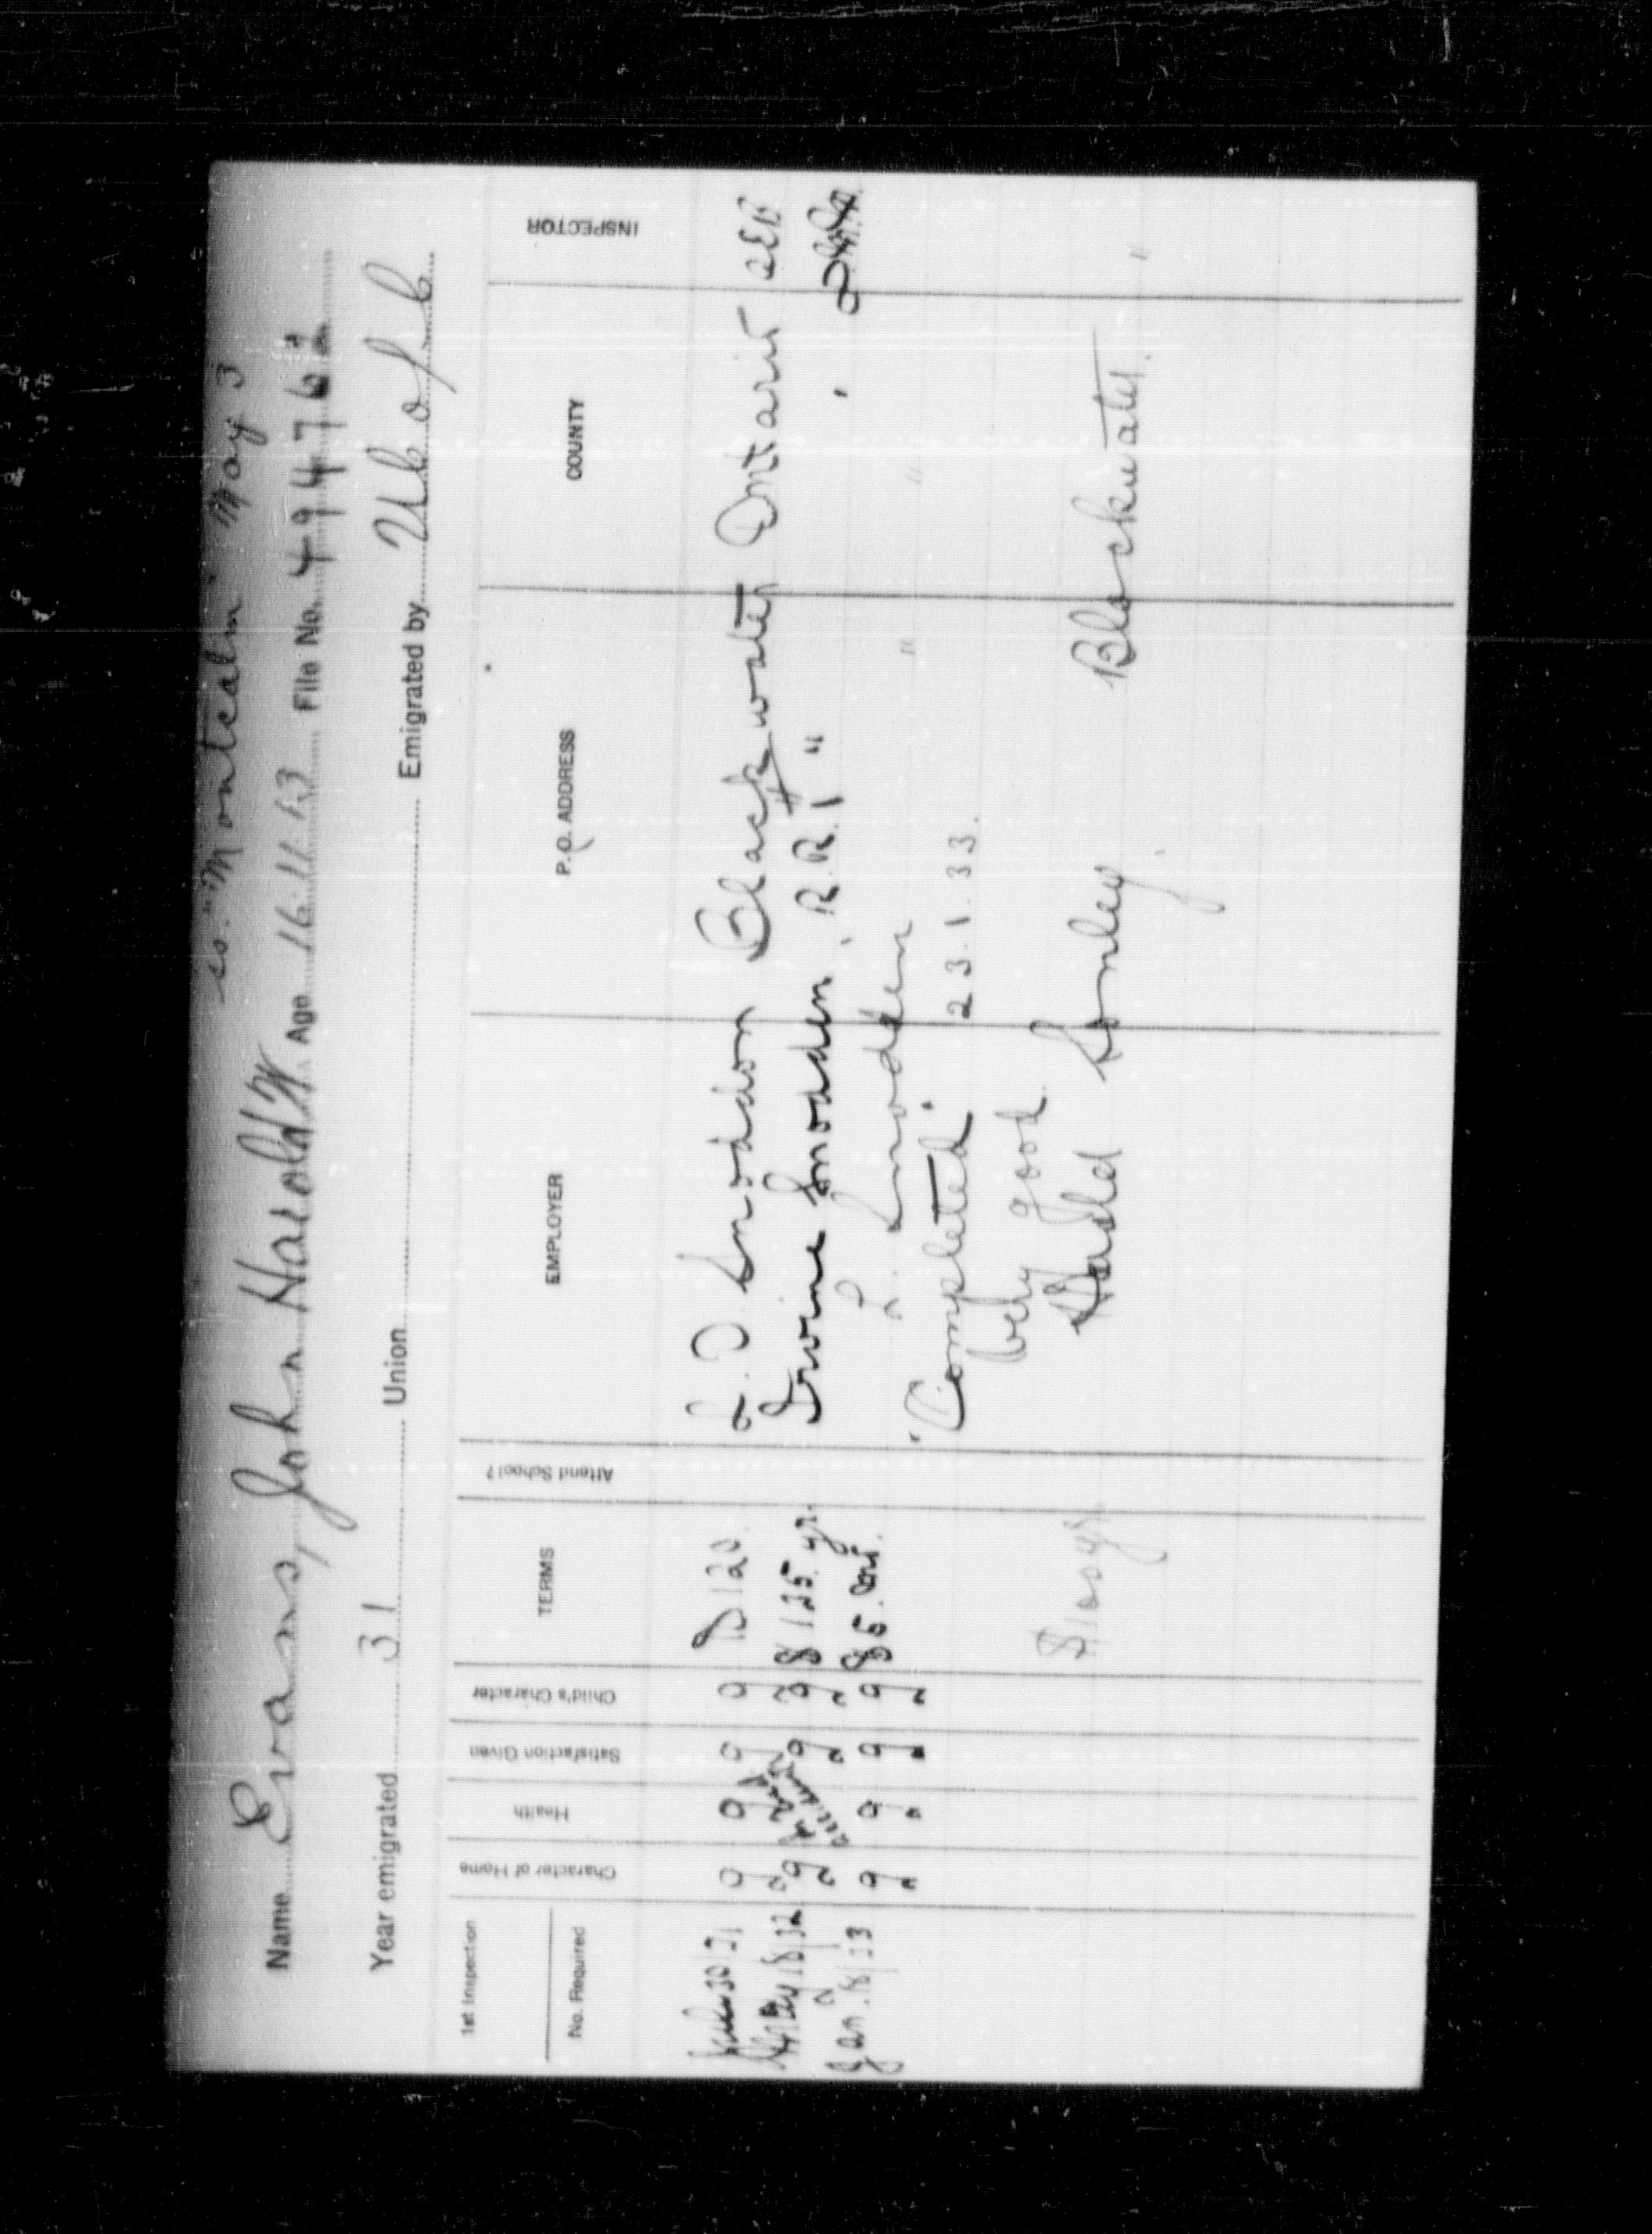 ss. "Montcalm" May 3
Name Evans, John Harold W. Age 16.11.13 File No. 494762
Year emigrated 31 Union Emigrated by U C of C
1st Inspection
No. Required
Character of Home
Health
Satisfaction Given
Child's Character
TERMS
Attend School?
EMPLOYER
P.O. ADDRESS
COUNTY
INSPECTOR
30/31 g g g g $120. L. D Snoddon Blackwater Ontario
May 18/32 g g g $125 yr. Irvine Snodden, R.R. 1 "
Jan. 18/33 g g g g $5. mo. L. Snodden " "
"Completed" 23.1.33.
Very good
Harold Blackwater "